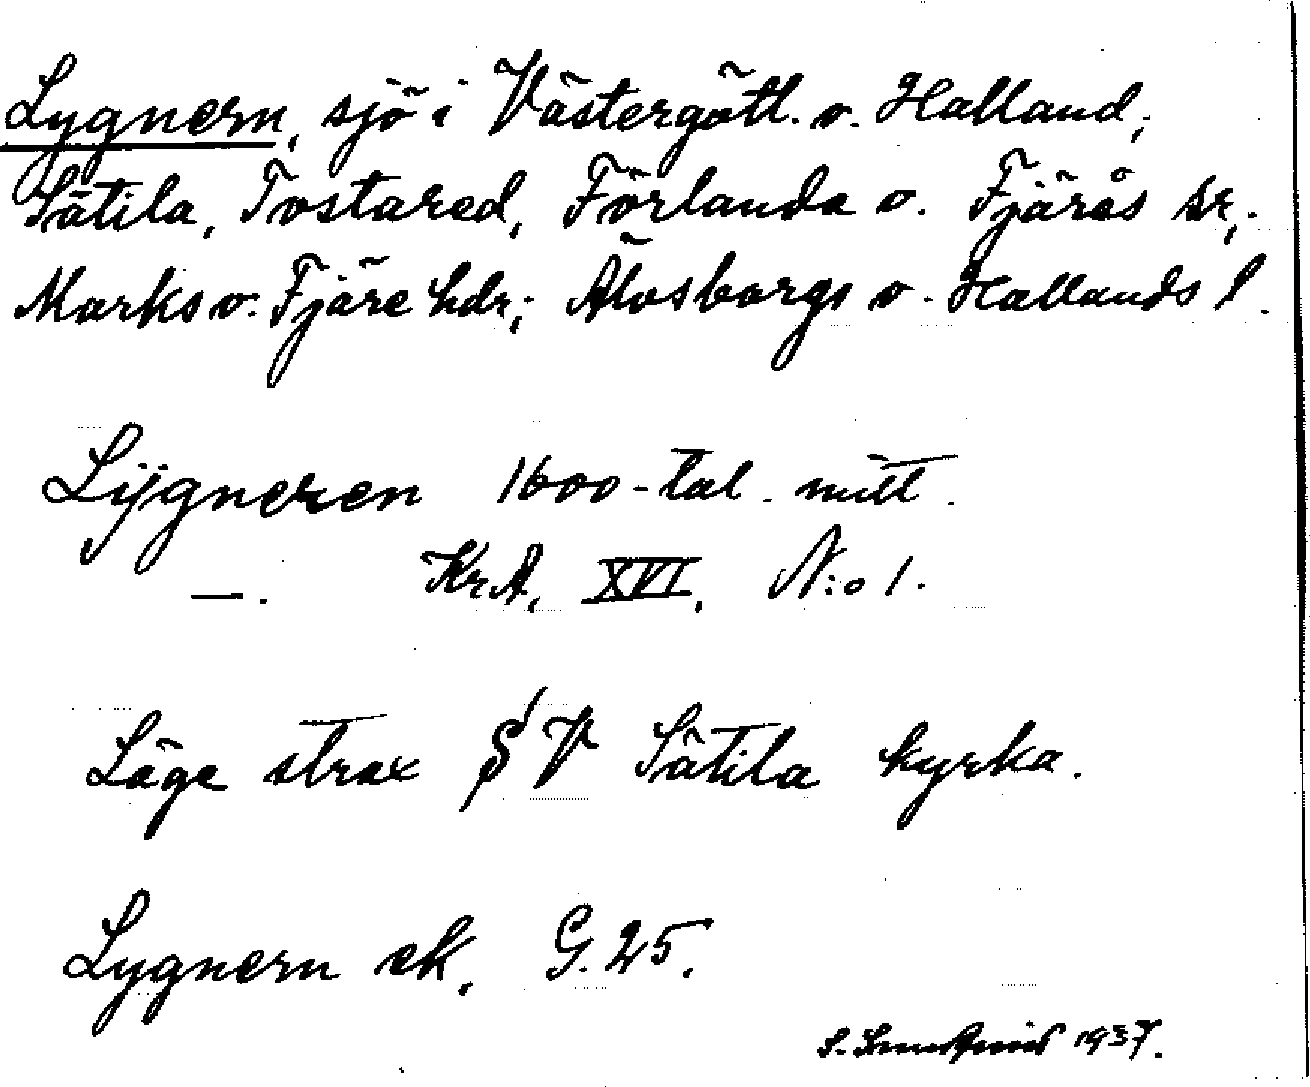 Lygnern, sjö i Västergötl. o. Halland;
Sätila, Tostared, Förlanda o. Fjärås sr;
Marks o. Fjäre hdr; Älvsborgs o. Hallands l.
Lÿgneren 1600-tal. mitt.
—. KrA, XVI, N:o 1.
Läge strax V Sätila kyrka.
Lygnern ek. G. 25.
S. 1937.